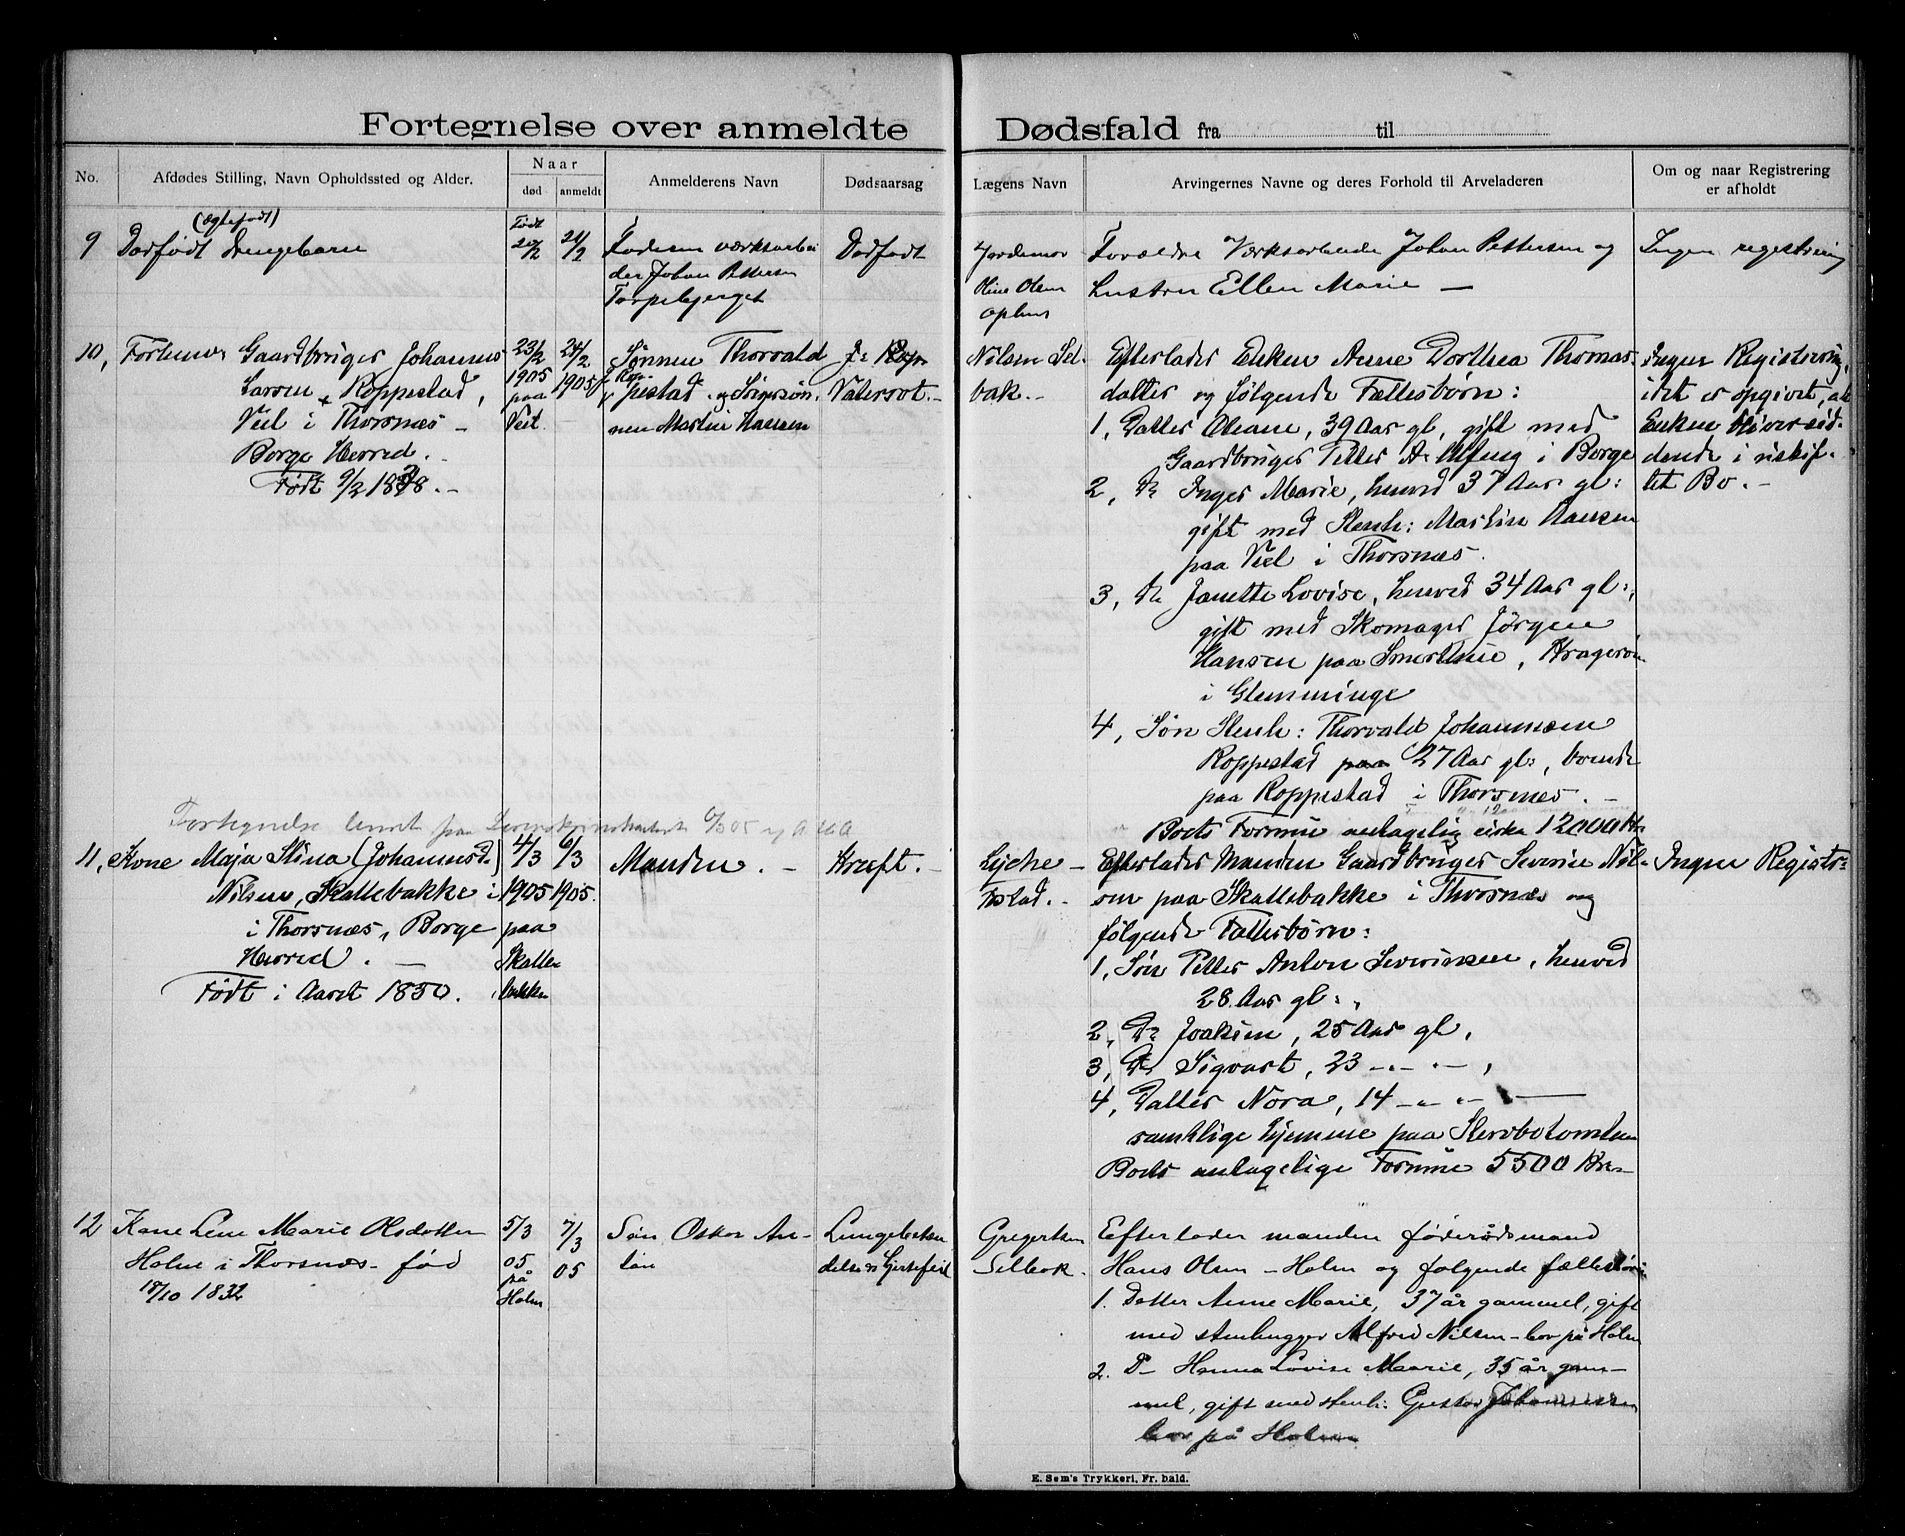 Fortegnelse over anmeldte Dødsfald fra til
No.
Afdødes Stilling, Navn Opholdssted og Alder.
Naar
død
anmeldt
Anmelderens Navn
Dødsaarsag
Lægens Navn
Arvingernes Navne og deres Forhold til Arveladeren
Om og naar Registrering
er afholdt
9
(ægtefødt)
Dødfødt Drengebarn
Født
20/2
21/2
Faderen værksarbei
der Johan Pettersen
Torpebjerget
Dødfødt
Jordemor
Oline Olsen
Ophus
Forældre Værksarbeider Johan Pettersen og
hustru Ellen Marie —
Ingen registrering
10,
Forhenv. Gaardbruger Johannes
Larsen Roppestad,
Veel i Thorsnæs -
Borge Herred.
Født 9/2 1838. -
23/2
1905
paa
Veel
24/2
1905
Sønnen Thorvald
Rop-
pestad og Svigersøn-
nen Martin Hansen
Vatersot. -
Nilsen Sel-
bak. -
Efterlader Enken Anne Dorthea Thomas-
datter og følgende Fællesbørn:
1, Datter Oleane, 39 Aar gl, gift med
Gaardbruger Petter A. Ulfeng i Borge
2, Do Inger Marie, henved 37 Aar gl:
gift med Stenh: Martin Hansen
paa Veel i Thorsnæs.
3, Do Janette Lovise, henved 34 Aar gl:,
gift med Skomager Jørgen
Hansen paa Smerthue, Kragerøen
i Glemminge
4, Søn Stenh: Thorvald Johannesen
Roppestad paa 27 Aar gl:, boende
paa Roppestad i Thorsnæs. -
Boets Formue antagelig cirka 12000 Kr
Ingen Registrering,
idet er opgivet, at
Enken hensid-
dende i uskif-
tet Bo. -
Fortegnelse paa
11,
Kone Maja Stina (Johannesd.)
Nilsen, Skattebakke i
i Thorsnæs, Borge
Herred. —
Født i Aaret 1850.
4/3
1905
paa
Skatte
bakke
6/3
1905.
Manden. -
Kræft. -
Lyche -
Efterlader Manden Gaardbruger Severin Nil-
sen paa Skattebakke i Thorsnæs og
følgende Fællesbørn:
1, Søn Petter Anton Severinsen, henved
28 Aar gl:,
2, Do Joakim, 25 Aar gl,
3, Do Sigvart, 23 - - -,
4, Datter Nora, 14 - - - —
samtlige hjemme paa Stervbotomten
Boets antagelige Formue 5500 Kr -
Ingen Registr-
12
Kone Lene Marie Olsdatter
Holm i Thorsnæs - fød
18/10 1832
5/3
05
på
Holm
7/3
05
Søn Oskar An-
ton
Lungebeten
delse og Hjertefeil
Gregertsen
Selbak.
Efterlader manden føderådsmand
Hans Olsen - Holm og følgende fællesbørn
1. Datter Anne Marie, 37 år gammel, gift
med stenhugger Alfred Nilsen - bor på Holm
2. Do Hanna Lovise Marie, 35 år gam-
mel, gift med stenh. Gustav Johannessen
bor på Holm
E. Sem's Trykkeri, Fr.hald.